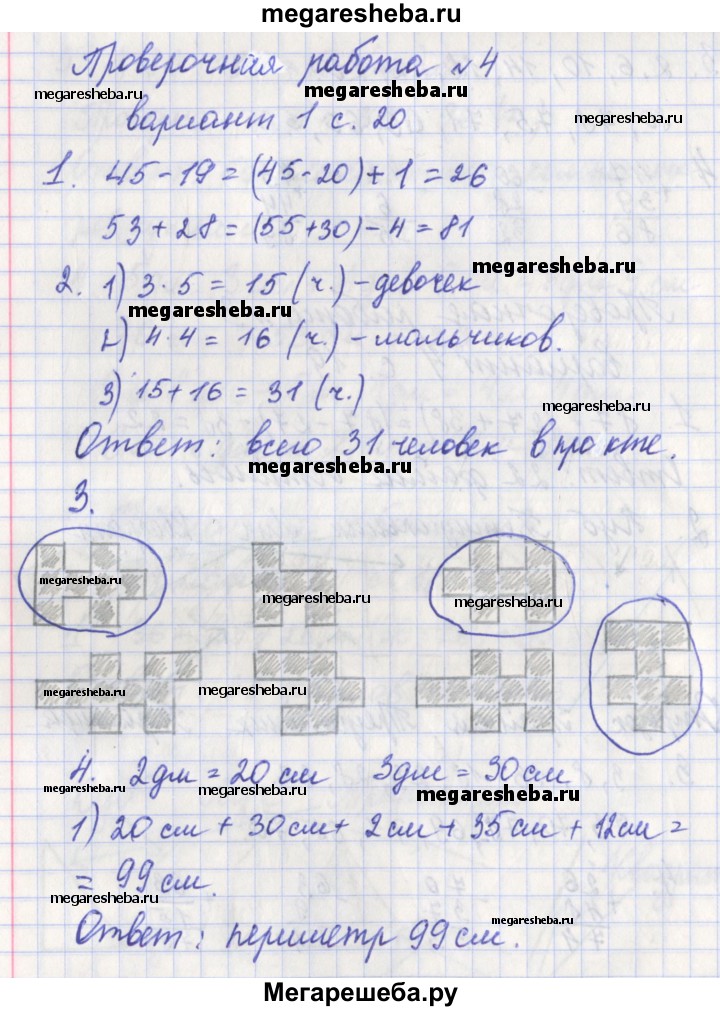 megaresheba.ru
Проверочная работа №4
megaresheba.ru megaresheba.ru megaresheba.ru
вариант 1 с. 20
megaresheba.ru
1. 45-19=(45-20)+1=26
53+28=(55+30)-4=81
megaresheba.ru
2. 1) 3·5=15 (ч.)-девочек
megaresheba.ru
2) 4·4=16 (ч.)-мальчиков.
3) 15+16=31 (ч.)
megaresheba.ru
Ответ: всего 31 человек в прокте.
megaresheba.ru
3.
megaresheba.ru megaresheba.ru megaresheba.ru
megaresheba.ru megaresheba.ru megaresheba.ru
4. 2дм=20см 3дм=30см
megaresheba.ru megaresheba.ru
1) 20см+30см+2см+35см+12см=
=99см.
megaresheba.ru
Ответ: периметр 99см.
megaresheba.ru
Мегарешеба.ру